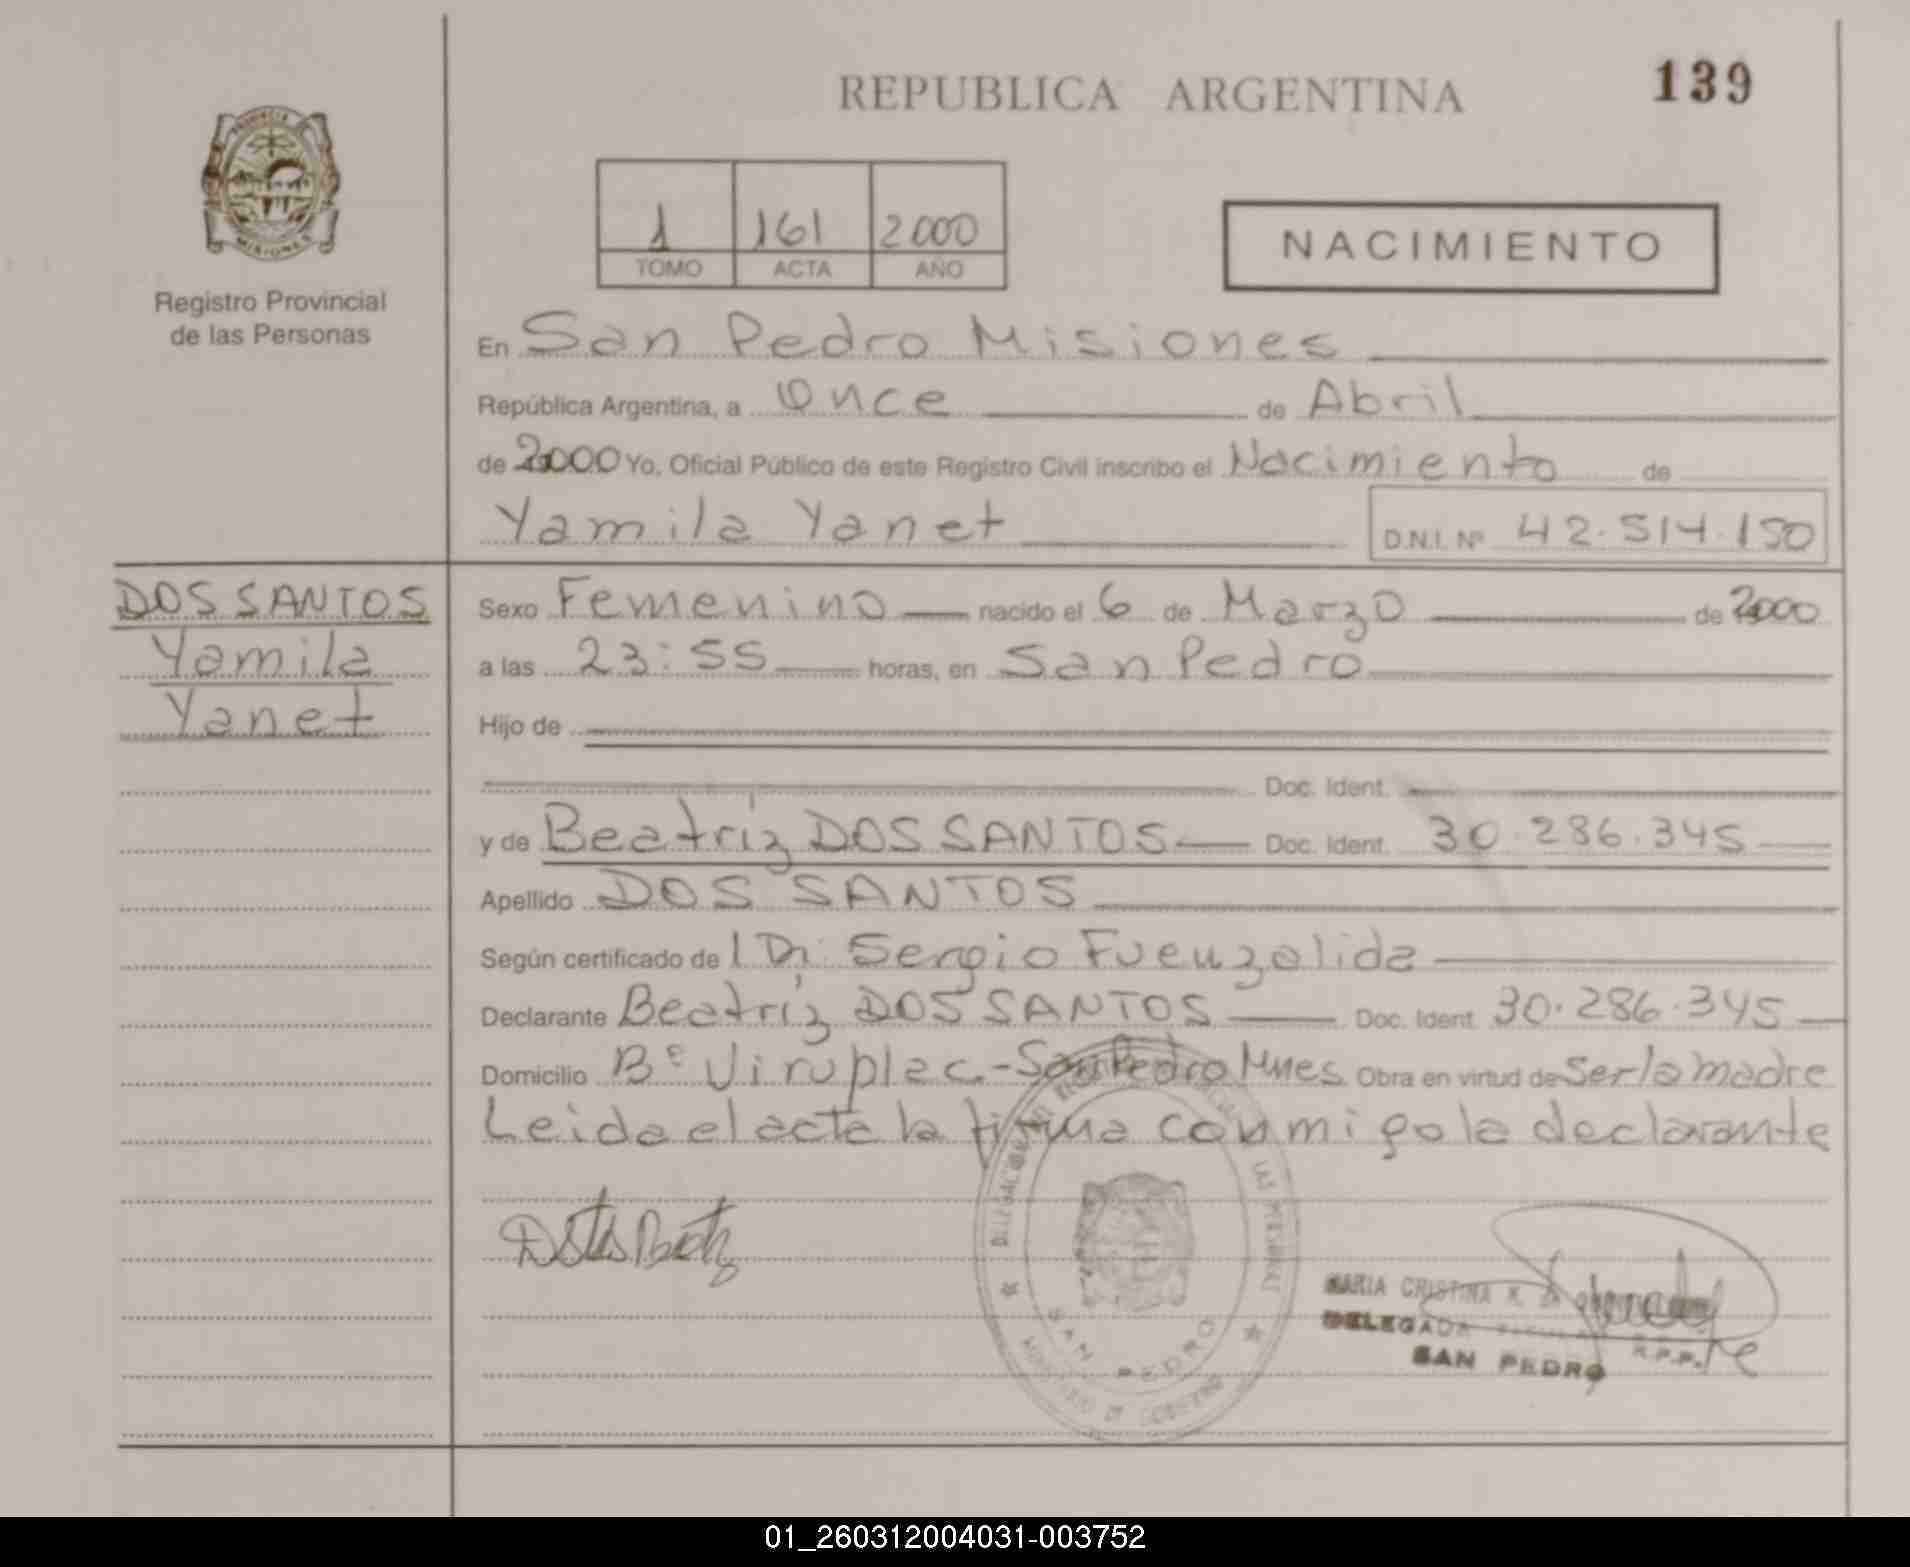 REPUBLICA ARGENTINA
139
PROVINCIA DE
MISIONES
Registro Provincial
de las Personas
1 161 2000
TOMO ACTA AÑO
NACIMIENTO
En San Pedro Misiones
República Argentina, a Once de Abril
de 2000 Yo, Oficial Público de este Registro Civil inscribo el Nacimiento de
Yamila Yanet D.N.I. Nº 42.514.150
DOS SANTOS
Yamila
Yanet
Sexo Femenino nacido el 6 de Marzo de 2000
a las 23:55 horas, en San Pedro
Hijo de
Doc. Ident.
y de Beatríz DOS SANTOS Doc. Ident. 30.286.345
Apellido DOS SANTOS
Según certificado de l Dr. Sergio Fuenzalida
Declarante Beatríz DOS SANTOS Doc. Ident. 30.286.345
Domicilio Bº Viruplac.-San Pedro Mnes. Obra en virtud de Ser la madre
Leida el acta la firma conmigo la declarante
SAN PEDRO
MINISTERIO DE GOBIERNO
MARIA CRISTINA K. DE
DELEGADA R.P.P.
SAN PEDRO
01_260312004031-003752